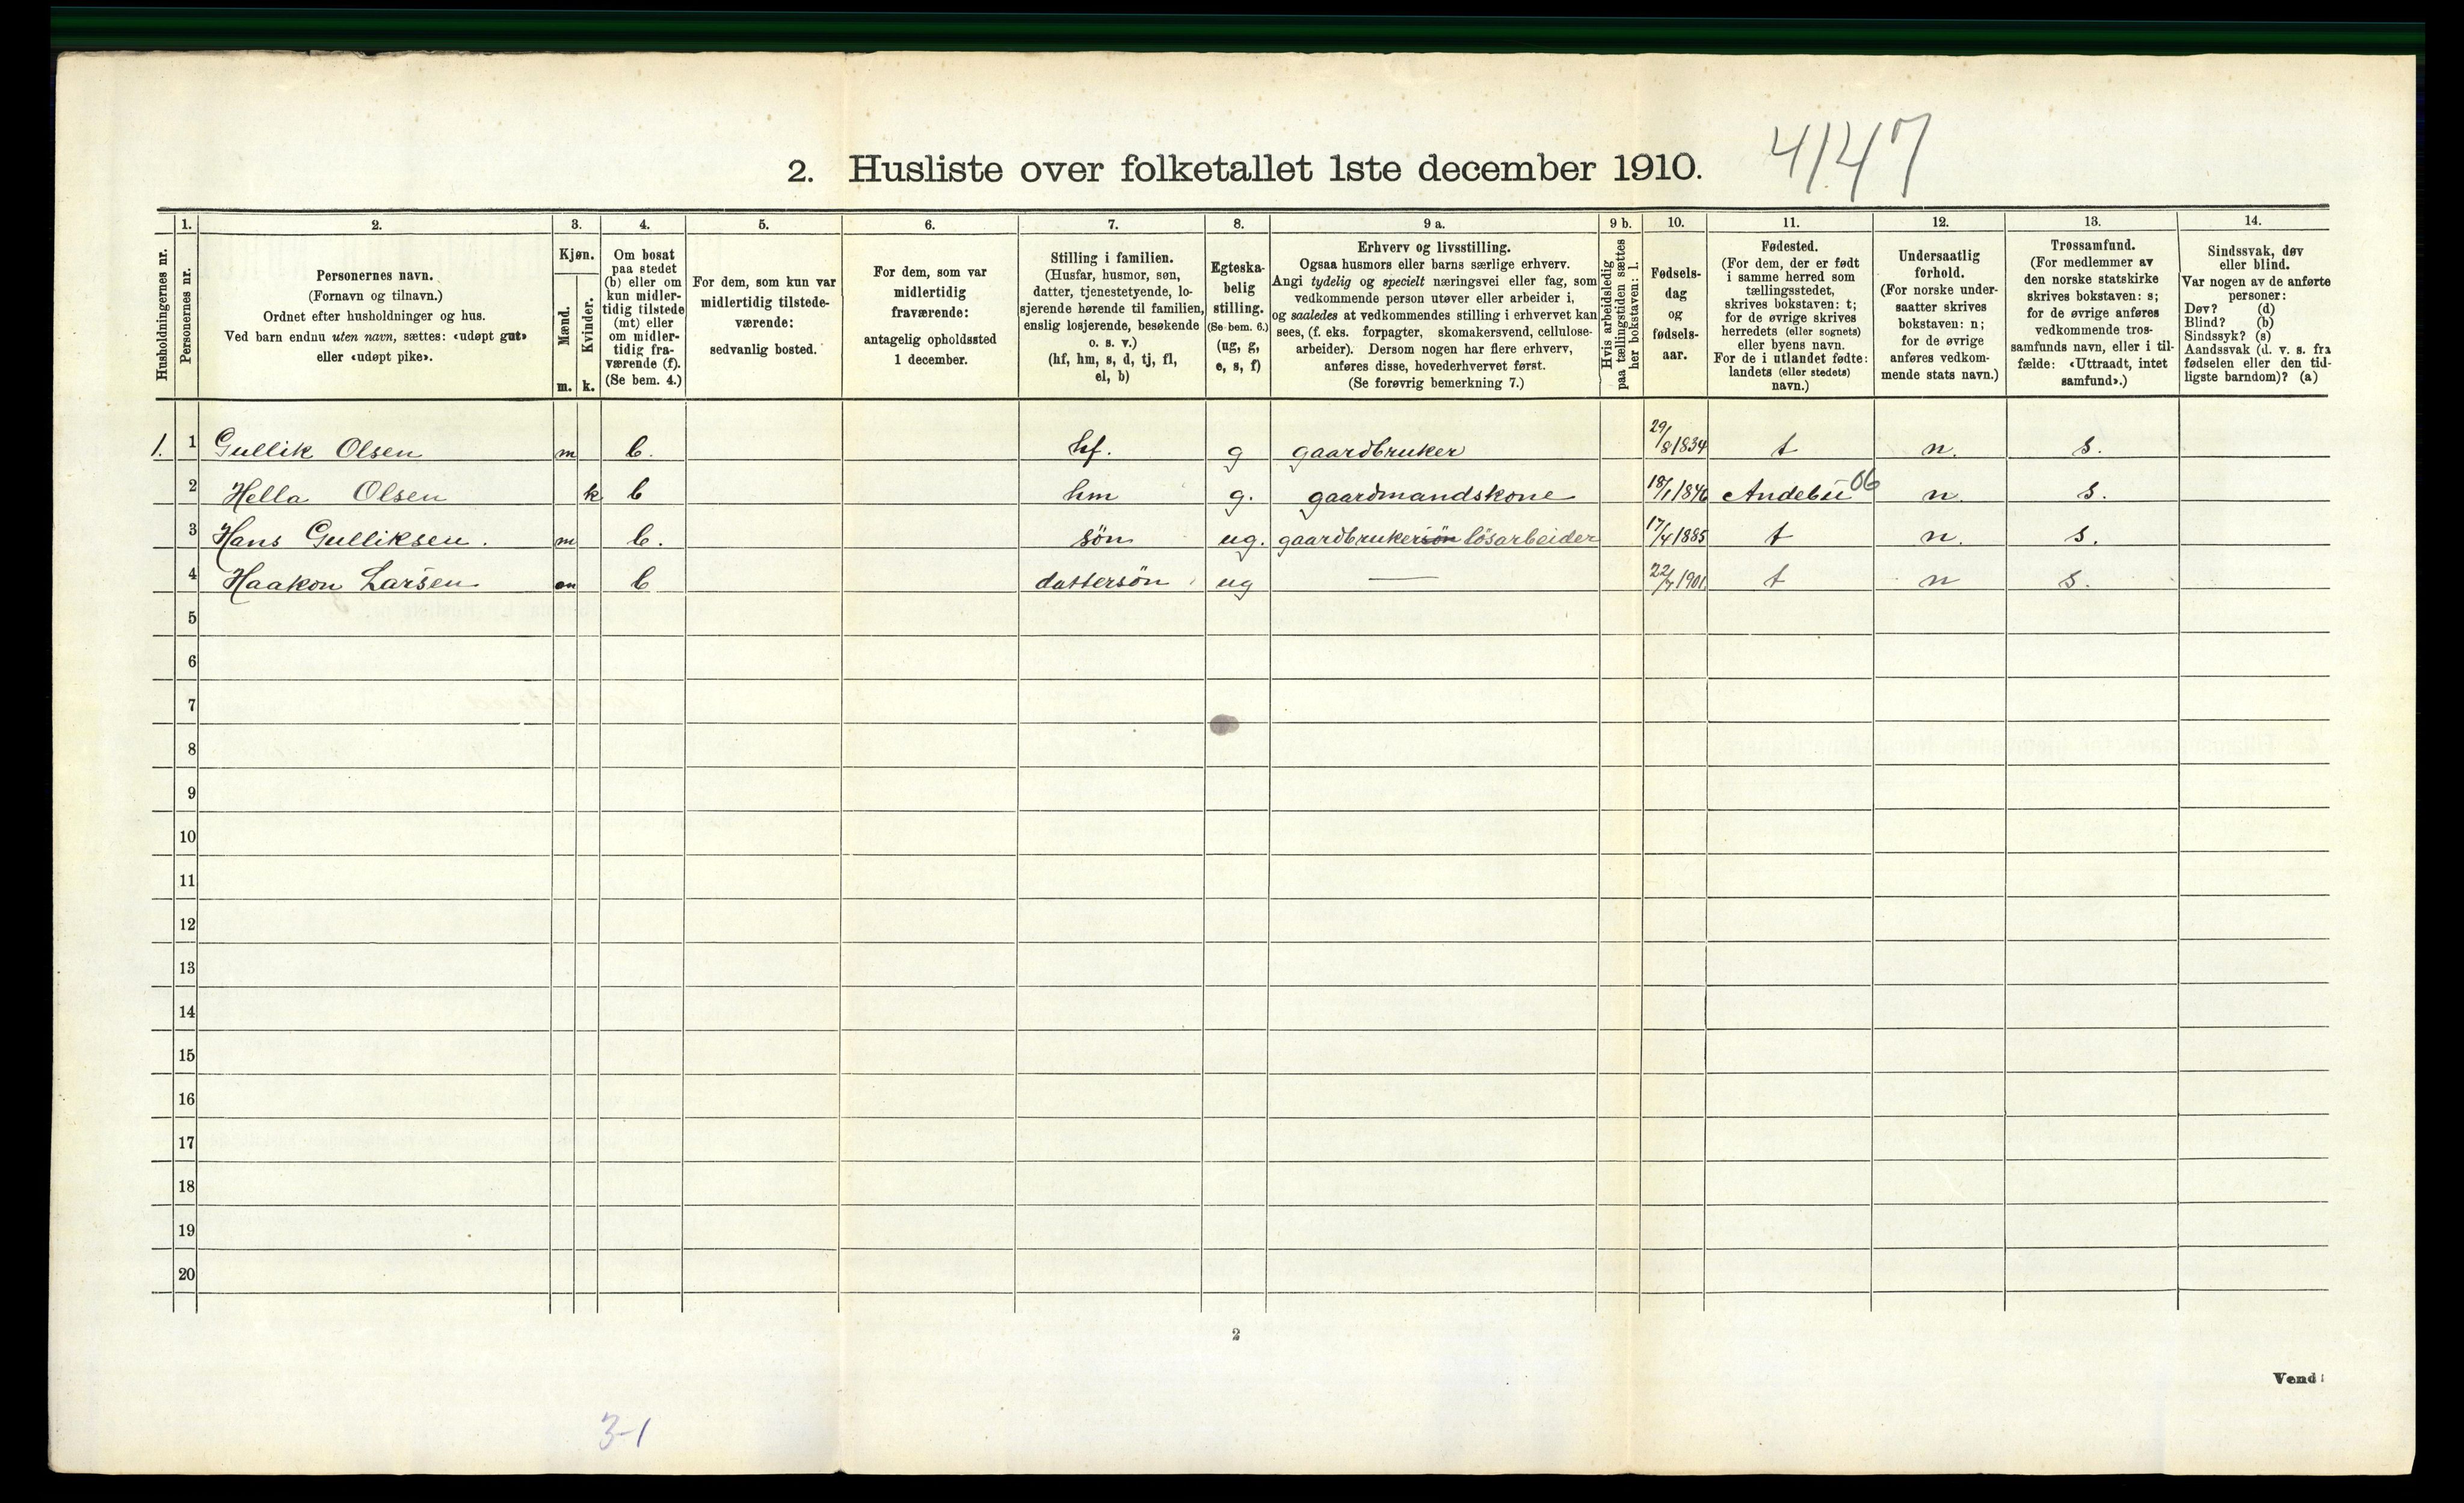 4147
2. Husliste over folketallet 1ste december 1910.
Husholdningernes nr.
1.
Personernes nr.
2.
Personernes navn.
(Fornavn og tilnavn.)
Ordnet efter husholdninger og hus.
Ved barn endnu uten navn, sættes: «udøpt gut»
eller «udøpt pike».
3.
Kjøn.
Mænd.
Kvinder.
m. k.
4.
Om bosat
paa stedet
(b) eller om
kun midler-
tidig tilstede
(mt) eller
om midler-
tidig fra-
værende (f).
(Se bem. 4.)
5.
For dem, som kun var
midlertidig tilstede-
værende:
sedvanlig bosted.
6.
For dem, som var
midlertidig
fraværende:
antagelig opholdssted
1 december.
7.
Stilling i familien.
(Husfar, husmor, søn,
datter, tjenestetyende, lo-
sjerende hørende til familien,
enslig losjerende, besøkende
o. s. v.)
(hf, hm, s, d, tj, fl,
el, b)
8.
Egteska-
belig
stilling.
(Se bem. 6.)
(ug, g,
e, s, f)
9 a.
Erhverv og livsstilling.
Ogsaa husmors eller barns særlige erhverv.
Angi tydelig og specielt næringsvei eller fag, som
vedkommende person utøver eller arbeider i,
og saaledes at vedkommendes stilling i erhvervet kan
sees, (f. eks. forpagter, skomakersvend, cellulose-
arbeider). Dersom nogen har flere erhverv,
anføres disse, hovederhvervet først.
(Se forøvrig bemerkning 7.)
9 b.
Hvis arbeidsledig
paa tællingstiden sættes
her bokstaven: l.
10.
Fødsels-
dag
og
fødsels-
aar.
11.
Fødested.
(For dem, der er født
i samme herred som
tællingsstedet,
skrives bokstaven: t;
for de øvrige skrives
herredets (eller sognets)
eller byens navn.
For de i utlandet fødte:
landets (eller stedets)
navn.)
12.
Undersaatlig
forhold.
(For norske under-
saatter skrives
bokstaven: n;
for de øvrige
anføres vedkom-
mende stats navn.)
13.
Trossamfund.
(For medlemmer av
den norske statskirke
skrives bokstaven: s;
for de øvrige anføres
vedkommende tros-
samfunds navn, eller i til-
fælde: «Uttraadt, intet
samfund».)
14.
Sindssvak, døv
eller blind.
Var nogen av de anførte
personer:
Døv? (d)
Blind? (b)
Sindssyk? (s)
Aandssvak (d. v. s. fra
fødselen eller den tid-
ligste barndom)? (a)
1. 1 Gullik Olsen m b. hf. g gaardbruker 29/8 1834 t n. s.
2 Hella Olsen k b hm g. gaardmandskone 18/1 1846 Andebu 06 n. s.
3 Hans Gulliksen. m b. søn ug. gaardbrukersøn løsarbeider 17/4 1885 t n. s.
4 Haakon Larsen m b dattersøn ug — 22/7 1901 t n s.
5
6
7
8
9
10
11
12
13
14
15
16
17
18
19
20
2
Vend!
3-1